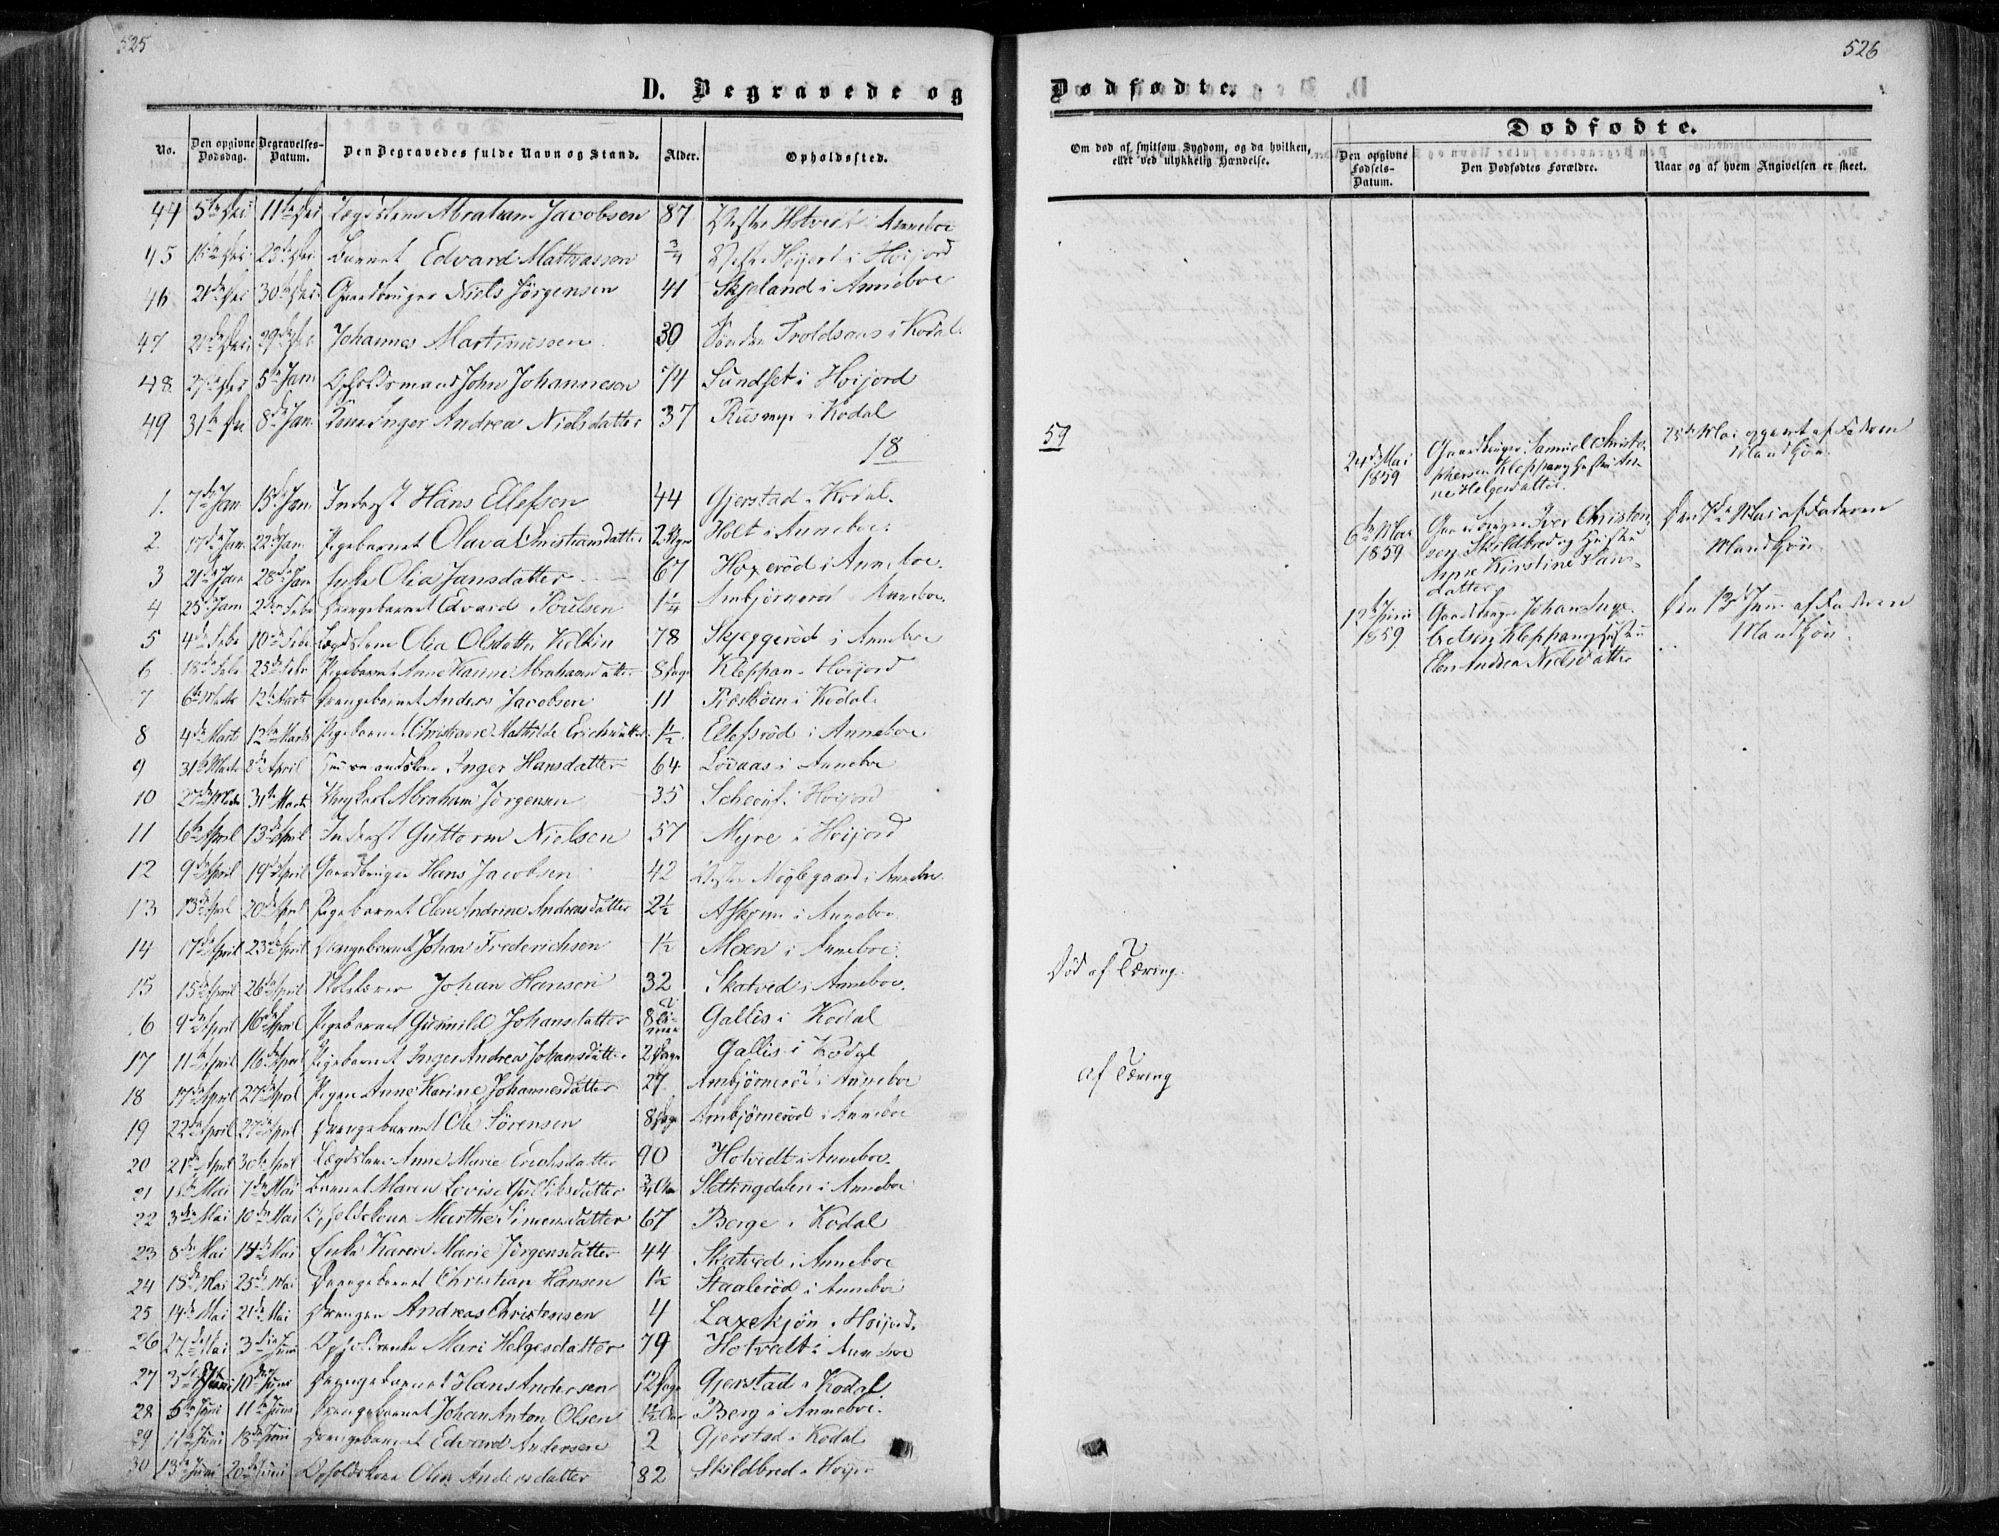 525
D. Begravede og
No. | Den opgivne Dødsdag. | Begravelses-Datum. | Den Begravedes fulde Navn og Stand. | Alder. | Opholdssted.
44 5te 11te Lægdslem Abraham Jacobsen 87 Vestre Hotvedt i Anneboe
45 Barnet Edvard Mathiassen 3/4 Vestre Høijord i Høijord
46 21de 30te Gaardbruger Niels Jörgensen 41 Skjeland i Anneboe
47 21de 29de Johannes Martinussen 39 Söndre Troldsaas i Kodal
48 27de 5te Jan. Opholdsmand John Johannesen 74 Sundset i Hoijord
49 31te 8de Jan Inger Andrea Nielsdatter 37 Rusmyr i Kodal
18
1. 7de Jan 15de Jan. Inderst Hans Ellefsen 44 Gjerstad i Kodal.
2. 17de Jan 22de Jan. Pigebarnet Olava Christiansdatter 2 Holt i Anneboe.
3 21de Jan 28de Jan Enke Olia Jansdatter 67 Hoxeröd i Anneboe.
4 25de Jan 2den Febr Drengebarnet Edvard Poulsen 1 1/4 Ambjörneröd i Anneboe.
5 4de Febr 10de Febr Lægdslem Olea Olsdatter 78 Skjeggeröd i Anneboe
6 18de Febr 25de Febr Pigebarnet Anne Karine Abrahamsdatter 8 Dage Kleppan i Hoijord
7 6te Marts 12te Marts Drengebarnet Anders Jacobsen 11 i Kodal.
8 4de Marts 12te Marts Pigebarnet Christiane Mathilde 1 1/2 Ellefsröd i Anneboe
9 31te Marts 8de April Inger Hansdatter 64 Lövaas i Anneboe
10 27de Marts 31te Marts Ungkarl Abraham Jörgensen 35 i Hoijord
11 6te April 13de April Inderst Guttorm Nielsen 57 Myre i Hoijord
12 9de April 19de April Gaardbruger Hans Jacobsen 42 Vestre Nöglegaard i Anneboe.
13 13de April 20de April Pigebarnet Elen Andrine Andreasdatter 2 1/2 Askjem i Anneboe.
14 17de April 23de April Drengebarnet Johan Frederichsen 1 1/2 Moen i Anneboe.
15 15de April 26de April Skolelærer Johan Hansen 32 Skatved i Anneboe.
16 9de April 16de April Pigebarnet Gunnild Johansdatter 8 Timer Gallis i Kodal
17 11te April 16de April Pigebarnet Inger Andrea Johansdatter 2 Dage Gallis i Kodal
18 17de April 27de April Pigen Anne Karine Johannesdatter 27 Ambjörneröd i Anneboe
19 22de April 27de April Drengebarnet Ole Sörensen 8 Dage Ambjörneröd i Anneboe
20 21de April 30te April Lægdslem Anne Marie Erichsdatter 90 Hotvedt i Anneboe.
21 1ste Mai 7de Mai Barnet Maren Lovise 3/4 Slettingdalen i Anneboe
22 3de Mai 10de Mai Opholdskone Marthe Simensdatter 67 Berge i Kodal
23 8de Mai 14de Mai Enke Karen Marie Jörgensdatter 44 Skatved i Anneboe
24 18de Mai 25de Mai Drengebarnet Christian Hansen 1 1/2 Staaleröd i Anneboe
25 14de Mai 21de Mai Drengen Andreas Christensen 4 Laxekjön i Hoijord.
26 27de Mai 3de Juni Opholdsenke Mari Helgesdatter 79 Hotvedt i Anneboe
27 3de Juni 10de Juni Drengebarnet Hans Andersen 12 Dage Gjerstad i Kodal.
28 5te Juni 11te Juni Drengebarnet Johan Anton Olsen 1 1/2 Berg i Anneboe.
29 11te Juni 18de Juni Drengebarnet Edvard Andersen 2 Gjerstad i Kodal
30 13de Juni 20de Juni Opholdskone Olea Andersdatter 82 Skildbred i Hoijor
526
Dødfødte.
Om død af smitsom Sygdom, og da hvilken, eller ved ulykkelig Hændelse. | Dødfødte. | Den opgivne Fødsels-Datum. | Den Dødfødtes Forældre. | Naar og af hvem Angivelsen er skeet.
59
24de Mai 1859 Gaardbruger Samuel Christophersen Kleppan og Hustru Anne Helgesdatter 25de Mai opgivet af Faderen Mandkjön.
6te Mai 1859 Gaardbruger Iver Christensen Skildbred og Hustru Anne Kirstine Hansdatter Den 7de Mai af Faderen Mandkjön
12te Juni 1859 Gaardbruger Johan Ingebretsen Kleppan og Hustru Elen Andrea Nielsdatter Den 13de Juni af Faderen Mandkjön
Död af Tæring.
af Tæring